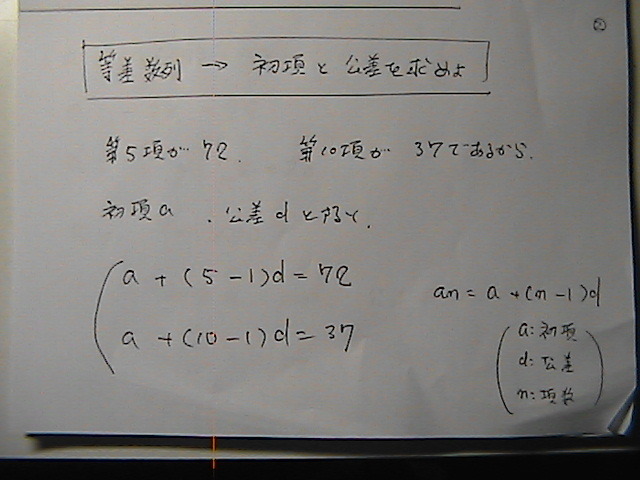 ②
等差数列 → 初項と公差を求めよ
第5項が72. 第10項が37であるから.
初項a、公差dとすると、
a + (5-1)d = 72
a + (10-1)d = 37
an = a + (n-1)d
a: 初項
d: 公差
n: 項数